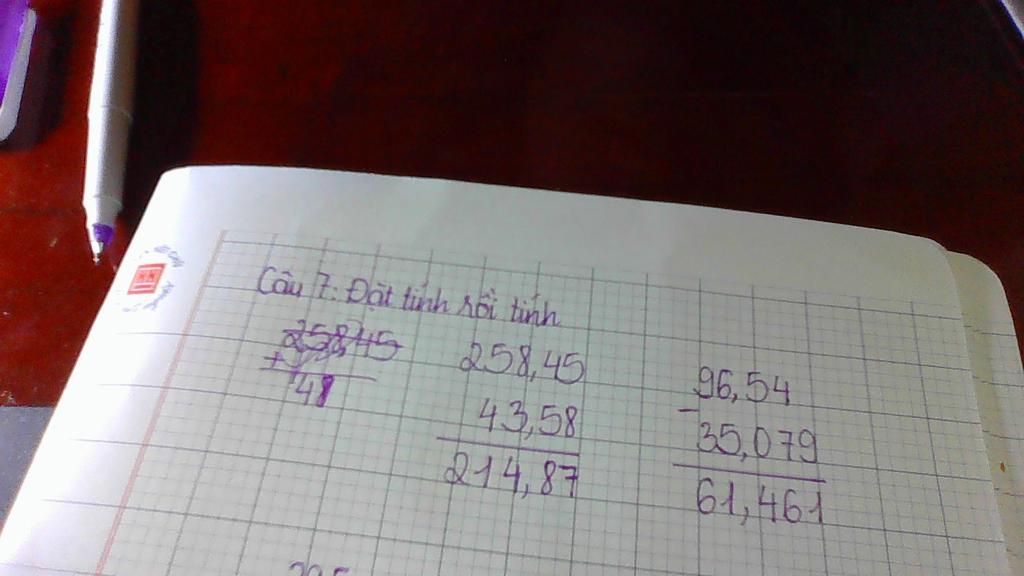 Câu 7: Đặt tính rồi tính
25845
+
48
258,45
43,58
214,87
96,54
-
35,079
61,461